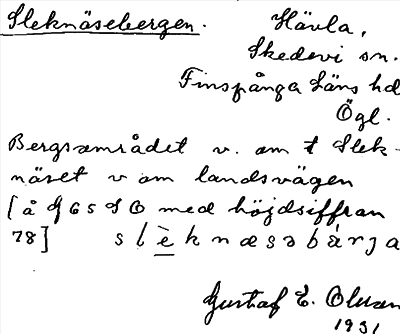 Sleknäsebergen.
Hävla,
Skedevi sn.
Finspånga läns hd
Ögl.
Bergsområdet v. om t Slek-
näset v om landsvägen
[å G 65 SO med höjdsiffran
78] slèknæsəbárja
Gustaf E. Olsson
1931